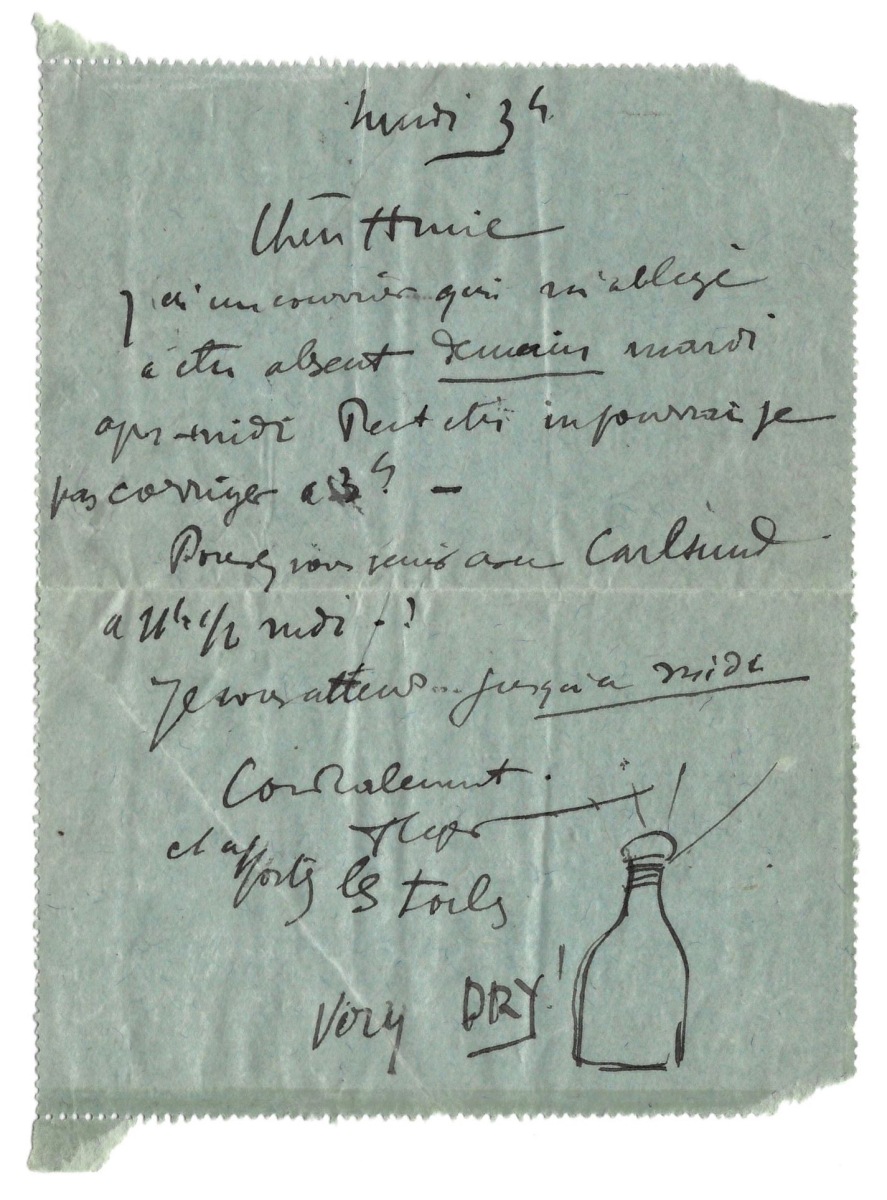 lundi 3h
Chère Amie
J'ai un courrier qui m'oblige
à être absent demain mardi
après-midi Peut être ne pourrai je
pas corriger a 3h. —
Pouvez vous venir avec Carlsund
a 11h 1/2 midi -?
Je vous attend jusqu'a midi
Cordialement.
et apportez les toiles
Very DRY!